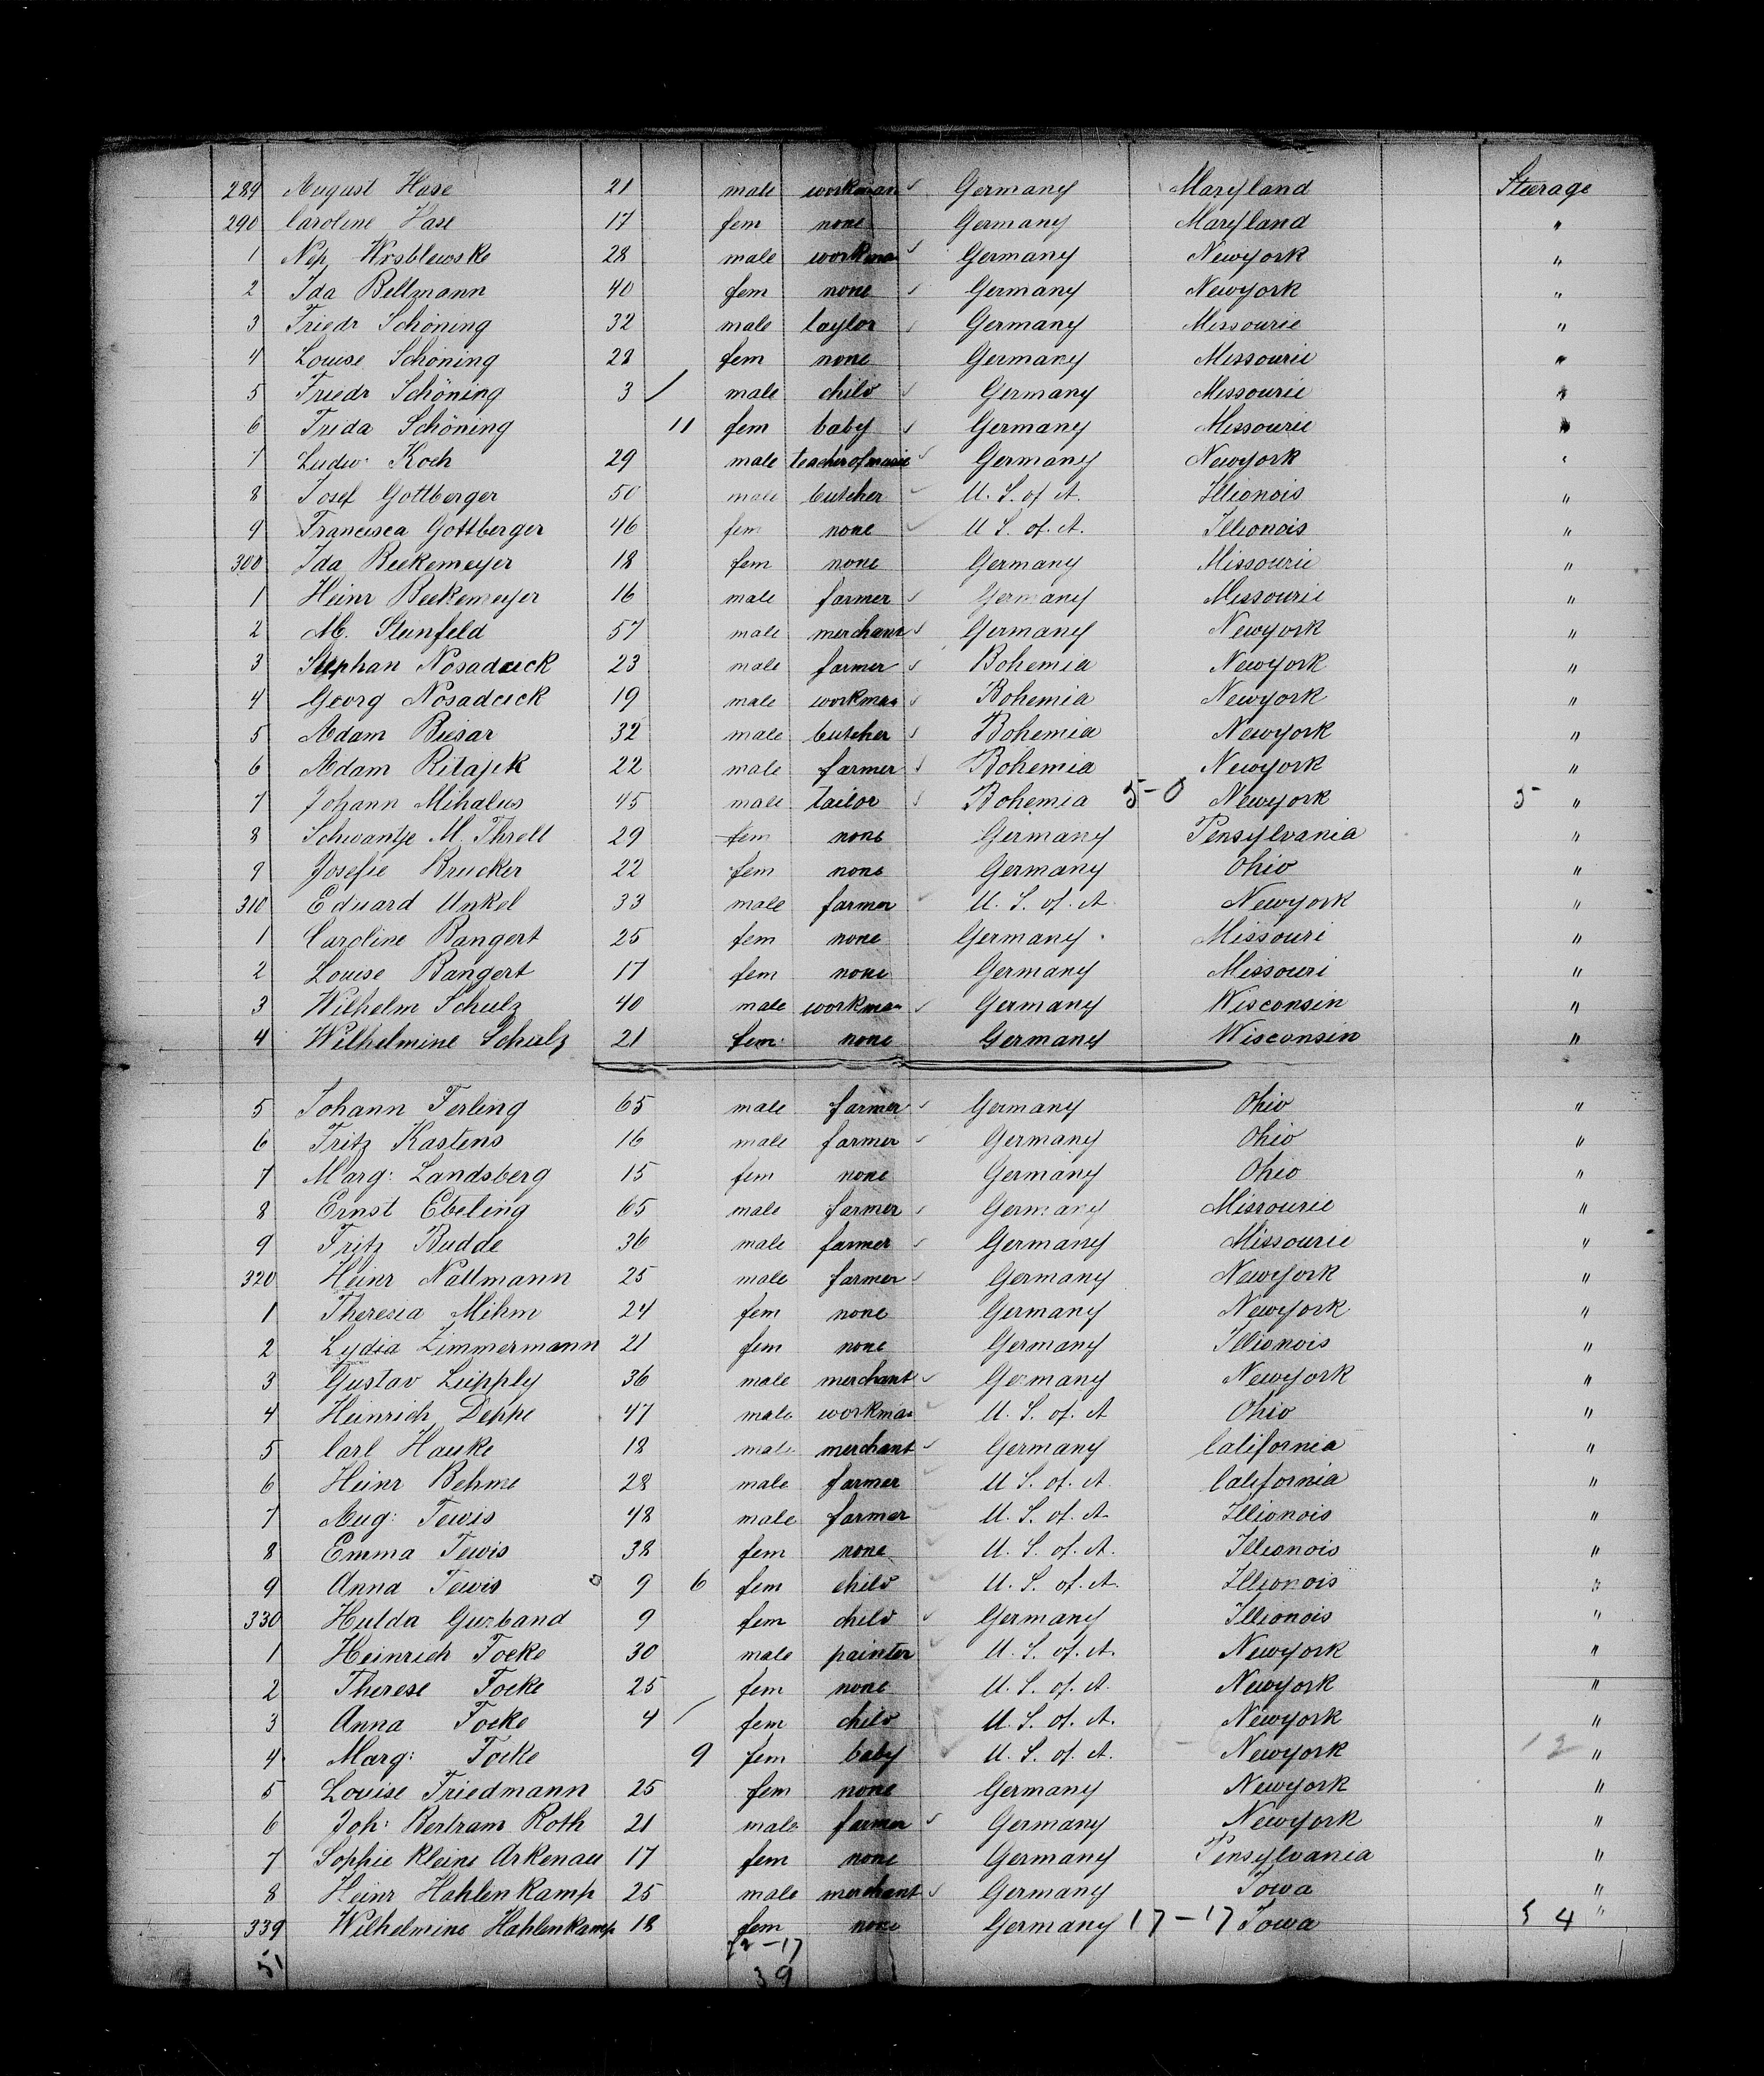 289 August Hase 21 male workman Germany Maryland Steerage
290 Caroline Hase 17 fem none Germany Maryland "
1 Nep Wrsblewske 28 male workman Germany Newyork "
2 Ida Bellmann 40 fem none Germany Newyork "
3 Friedr Schöning 32 male taylor Germany Missourie "
4 Louise Schöning 28 fem none Germany Missourie "
5 Friedr Schöning 3 male child Germany Missourie "
6 Frida Schöning 11 fem baby Germany Missourie "
7 Ludw: Koch 29 male teacher of music Germany Newyork "
8 Josef Gottberger 50 male butcher U. S. of A. Illionois "
9 Francisca Gottberger 46 fem none U S. of. A. Illionois "
300 Ida Beekemeyer 18 fem none Germany Missourie "
1 Heinr Beekemeyer 16 male farmer Germany Missourie "
2 M. Steinfeld 57 male merchant Germany Newyork "
3 Stephan Nosadcick 23 male farmer Bohemia Newyork "
4 Georg Nosadcick 19 male workman Bohemia Newyork "
5 Adam Biesar 32 male butcher Bohemia Newyork "
6 Adam Ritajek 22 male farmer Bohemia Newyork "
7 Johann Mihalus 45 male tailor Bohemia 5-0 Newyork 5 "
8 Schwantje M. Threll 29 fem none Germany Pensylvania "
9 Josefie Brucker 22 fem none Germany Ohio "
310 Eduard Unkel 33 male farmer U. S. of. A Newyork "
1 Caroline Bangert 25 fem none Germany Missouri "
2 Louise Bangert 17 fem none Germany Missouri "
3 Wilhelm Schulz 40 male workman Germany Wisconsin "
4 Wilhelmine Schulz 21 fem none Germany Wisconsin "
5 Johann Ferling 65 male farmer Germany Ohio "
6 Fritz Kastens 16 male farmer Germany Ohio "
7 Marg: Landsberg 15 fem none Germany Ohio "
8 Ernst Ebeling 65 male farmer Germany Missourie "
9 Fritz Budde 36 male farmer Germany Missourie "
320 Heinr Nallmann 25 male farmer Germany Newyork "
1 Theresia Mihm 24 fem none Germany Newyork "
2 Lydia Zimmermann 21 fem none Germany Illionois "
3 Gustav Leipply 36 male merchant Germany Newyork "
4 Heinrich Deppe 47 male workman U. S. of. A Ohio "
5 Carl Hauke 18 male merchant Germany California "
6 Heinr Behme 28 male farmer U S. of. A California "
7 Aug: Tewis 48 male farmer U. S. of. A Illionois "
8 Emma Tewis 38 fem none U. S. of. A. Illionois "
9 Anna Tewis 9 6 fem child U. S. of. A. Illionois "
330 Hulda Gurband 9 fem child Germany Illionois "
1 Heinrich Focke 30 male painter U. S. of. A. Newyork "
2 Therese Focke 25 fem none U. S. of. A. Newyork "
3 Anna Focke 4 fem child U. S. of. A. Newyork "
4 Marg: Focke 9 fem baby U. S. of. A. Newyork 12 "
5 Louise Friedmann 25 fem none Germany Newyork "
6 Joh: Bertram Roth 21 male farmer Germany Newyork "
7 Sophie Kleine Arkenau 17 fem none Germany Pensylvania "
8 Heinr Hahlenkamp 25 male merchant Germany Iowa "
339 Wilhelmine Hahlenkamp 18 fem none Germany 17-17 Iowa 4 "
51 17
39